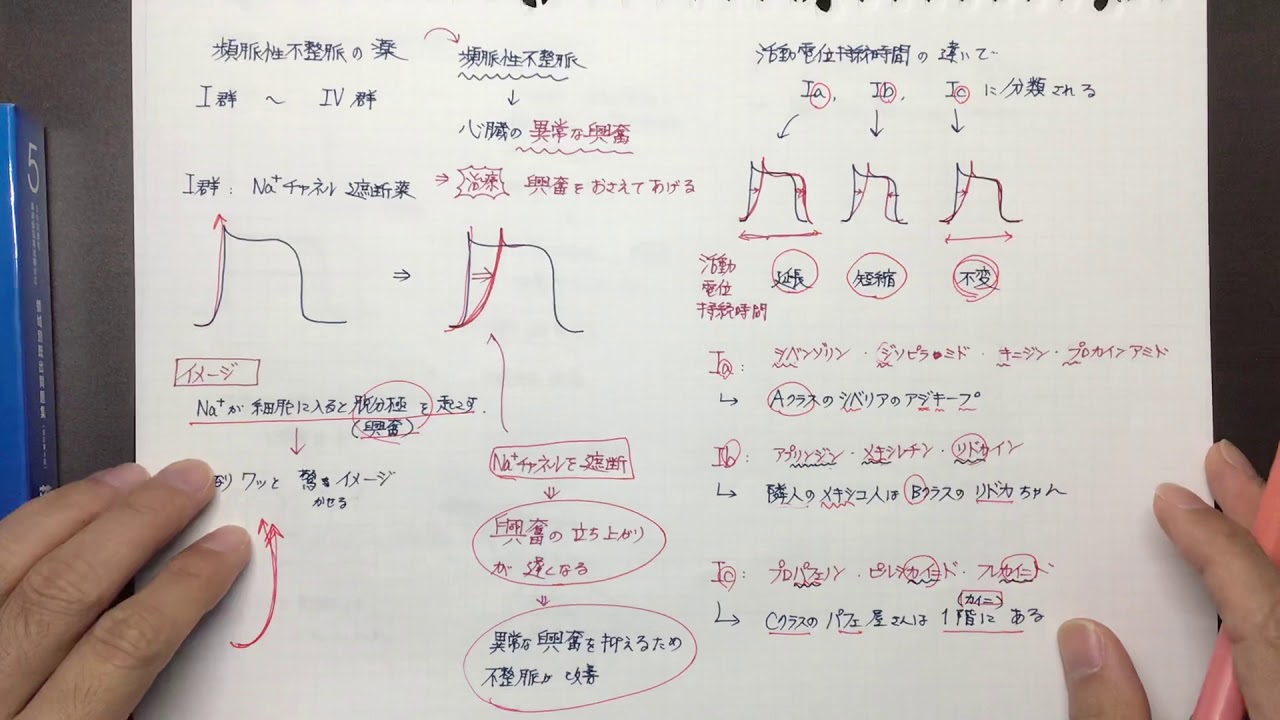 頻脈性不整脈の薬
I群 ~ IV群
I群: Na⁺チャネル遮断薬
イメージ
Na⁺が細胞に入ると脱分極を起こす.
(興奮)
ワッと 驚き イメージ
かせる
頻脈性不整脈
↓
心臓の異常な興奮
⇒ 治療 興奮をおさえてあげる
⇒
Na⁺チャネルを遮断
⇓
興奮の立ち上がり
が遅くなる
⇓
異常な興奮を抑えるため
不整脈が改善
活動電位持続時間の違いで
Ia, Ib, Ic に分類される
活動
電位
持続時間
延長 短縮 不変
Ia: シベンゾリン・ジソピラミド・キニジン・プロカインアミド
↳ Aクラスのシベリアのアジキープ
Ib: アプリンジン・メキシレチン・リドカイン
↳ 隣人のメキシコ人はBクラスのリドカちゃん
Ic: プロパフェノン・ピルシカイニド・フレカイニド
(カイニ)
↳ Cクラスのパフェ屋さんは1階にある
5
領域別既出問題集